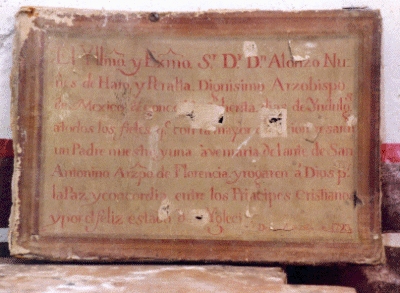 El Yllmo y Exmo Sr Dr Dn Alonzo Nu
ñes de Haro y Peralta Dionisimo Arzobispo
de Mexico concede dias de Yndulg
atodos los fieles q con mayor devocion y
un Padre nuestro y una ave maria delante de San
Antonino Arzpo de Florencia, y rogaren a Dios pr
la Paz y concordia entre los Principes Cristiano
y por el feliz estado Igleci